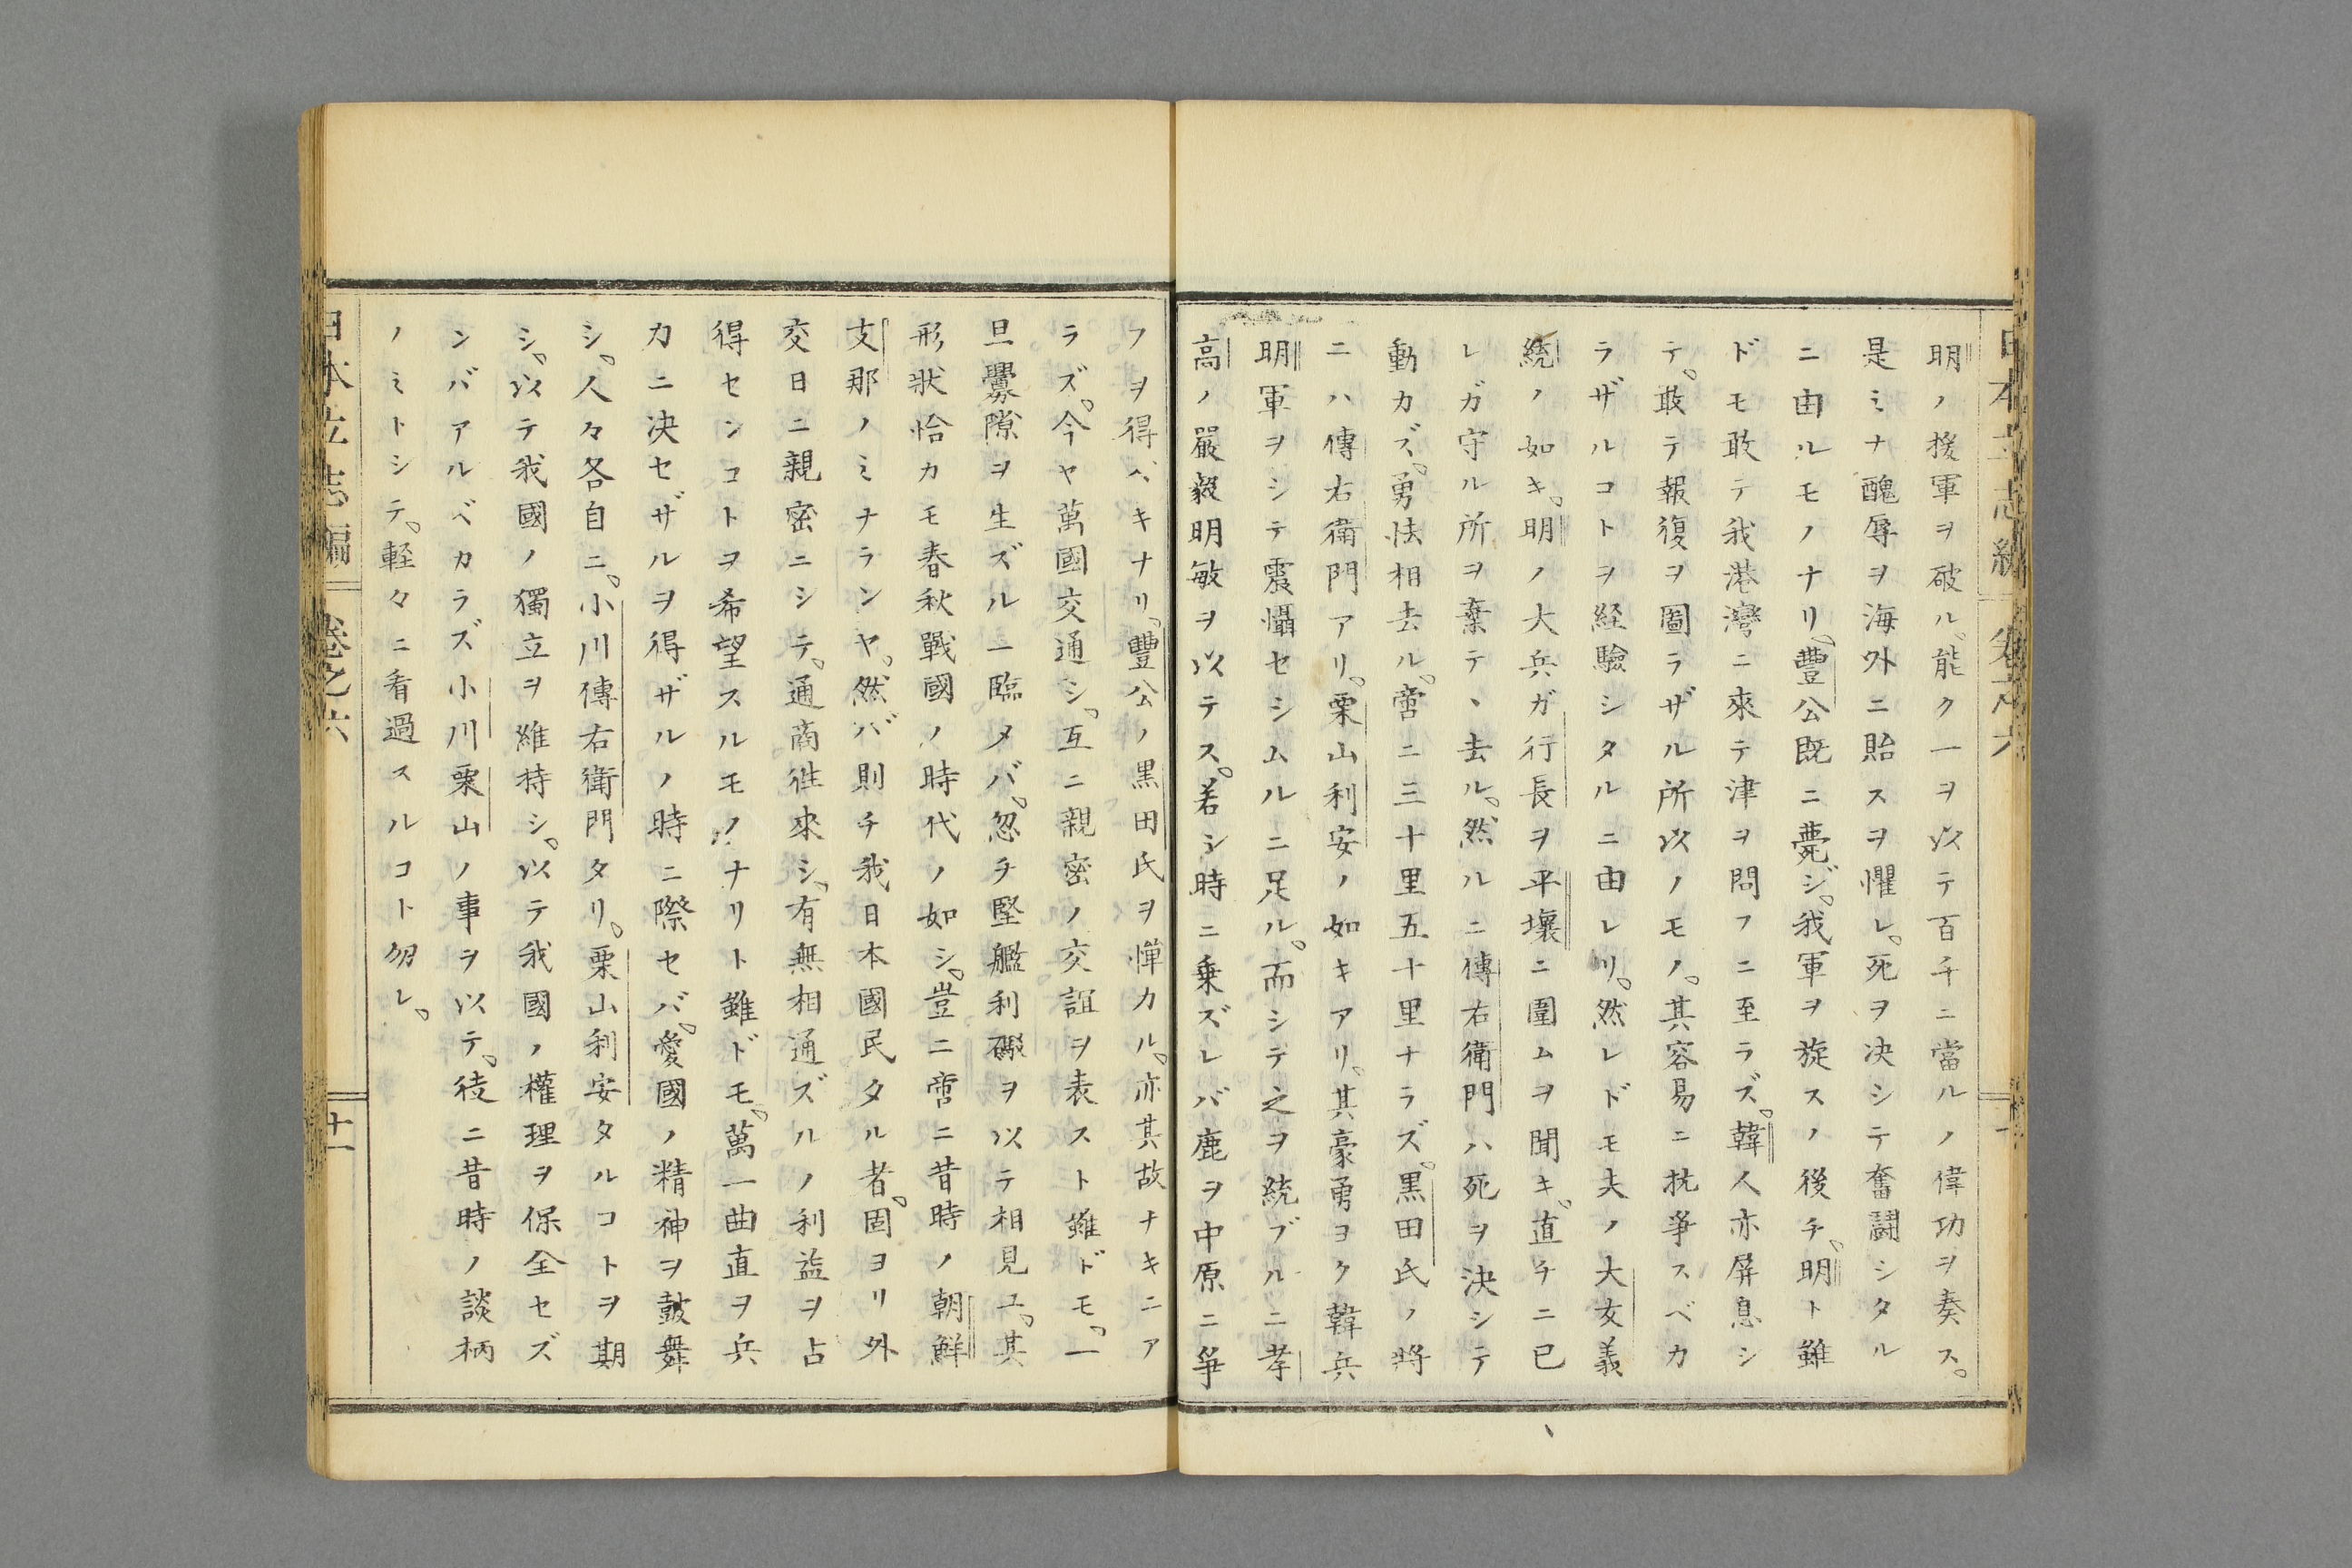 明ノ援軍ヲ破ル。能ク一ヲ以テ百千ニ當ルノ偉功ヲ奏ス。
是ミナ醜辱ヲ海外ニ貽スヲ懼レ。死ヲ决シテ奮鬪シタル
ニ由ルモノナリ。豐公既ニ薨ジ。我軍ヲ旋スノ後チ。明ト雖
ドモ敢テ我港灣ニ來テ津ヲ問フニ至ラズ。韓人亦屏息シ
テ。敢テ報復ヲ圖ラザル所以ノモノ。其容易ニ抗爭スベカ
ラザルコトヲ経驗シタルニ由レリ。然レドモ夫ノ大友義
統ノ如キ。明ノ大兵ガ行長ヲ平壤ニ圍ムヲ聞キ。直チニ已
レガ守ル所ヲ棄テヽ去ル。然ルニ傳右衛門ハ死ヲ決シテ
動カズ。勇怯相去ル。啻ニ三十里五十里ナラズ。黒田氏ノ將
ニハ傳右衛門アリ。栗山利安ノ如キアリ。其豪勇ヨク韓兵
明軍ヲシテ震懾セシムルニ足ル。而シテ之ヲ統ブルニ孝
高ノ嚴毅明敏ヲ以テス。若シ時ニ乗ズレバ鹿ヲ中原ニ爭
フヲ得ベキナリ。豐公ノ黒田氏ヲ憚カル。亦其故ナキニア
ラズ。今ヤ萬國交通シ。互ニ親密ノ交誼ヲ表スト雖ドモ。一
旦釁隙ヲ生ズルニ臨タバ。忽チ堅艦利礟ヲ以テ相見ユ。其
形狀恰カモ春秋戰國ノ時代ノ如シ。豈ニ啻ニ昔時ノ朝鮮
支那ノミナランヤ。然バ則チ我日本國民タル者。固ヨリ外
交日ニ親密ニシテ。通商徃來シ。有無相通ズルノ利益ヲ占
得センコトヲ希望スルモノナリト雖ドモ。萬一曲直ヲ兵
力ニ决セザルヲ得ザルノ時ニ際セバ。愛國ノ精神ヲ鼓舞
シ。人々各自ニ。小川傳右衛門タリ。栗山利安タルコトヲ期
シ。以テ我國ノ獨立ヲ維持シ。以テ我國ノ權理ヲ保全セズ
ンバアルベカラズ小川栗山ノ事ヲ以テ。徒ニ昔時ノ談柄
ノミトシテ。軽々ニ看過スルコト勿レ。
日本立志編 卷之六 十一